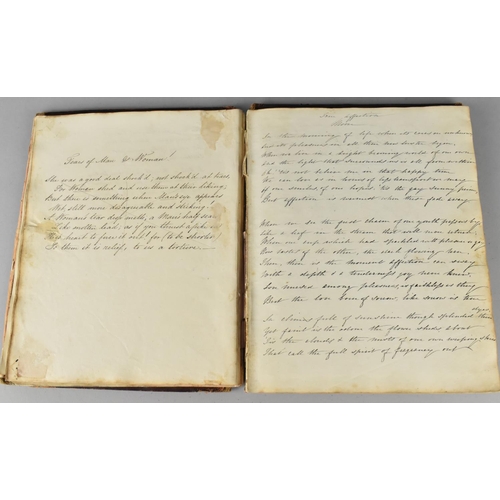 Tears of Man & Woman!
She was a good deal shock'd, not shock'd at tears
For Woman shed and use them at their liking;
But there is something when Man's eye appears
Wet, still more disagreeable and striking.
A Woman's tear drop melts, a Man's half sears
Like molten lead, as if you thrust a pike in
His heart to force it out; for (to be shorter)
To them it is relief, to us a torture.
On Affection
Moore
In the morning of life when its cares are unknown
And its pleasures in all their new lustre begin
When we live in a bright beaming world of our own
And the light that surrounds us is all from within
Oh 'tis not believe me in that happy time
We can love as in hours of less transport we may
Of our smiles of our hopes 'tis the gay sunny prime
But affection is warmest when these fade away
When we see the first of our youth pass us by
Like a leaf on the stream that will never return
When our cup which had sparkled with pleasure so high
First tastes of the other, the dark flowing urn
Then, then is the moment affection can sway
With a depth & a tenderness joy never knew
Love nursed among pleasures is faithless as they
But the love born of sorrow, like sorrow is true
In climes full of sunshine though splendid their
Yet faint is the odour the flower sheds about
'Tis the clouds & the mists of our own weeping
That call the full spirit of fragrancy out